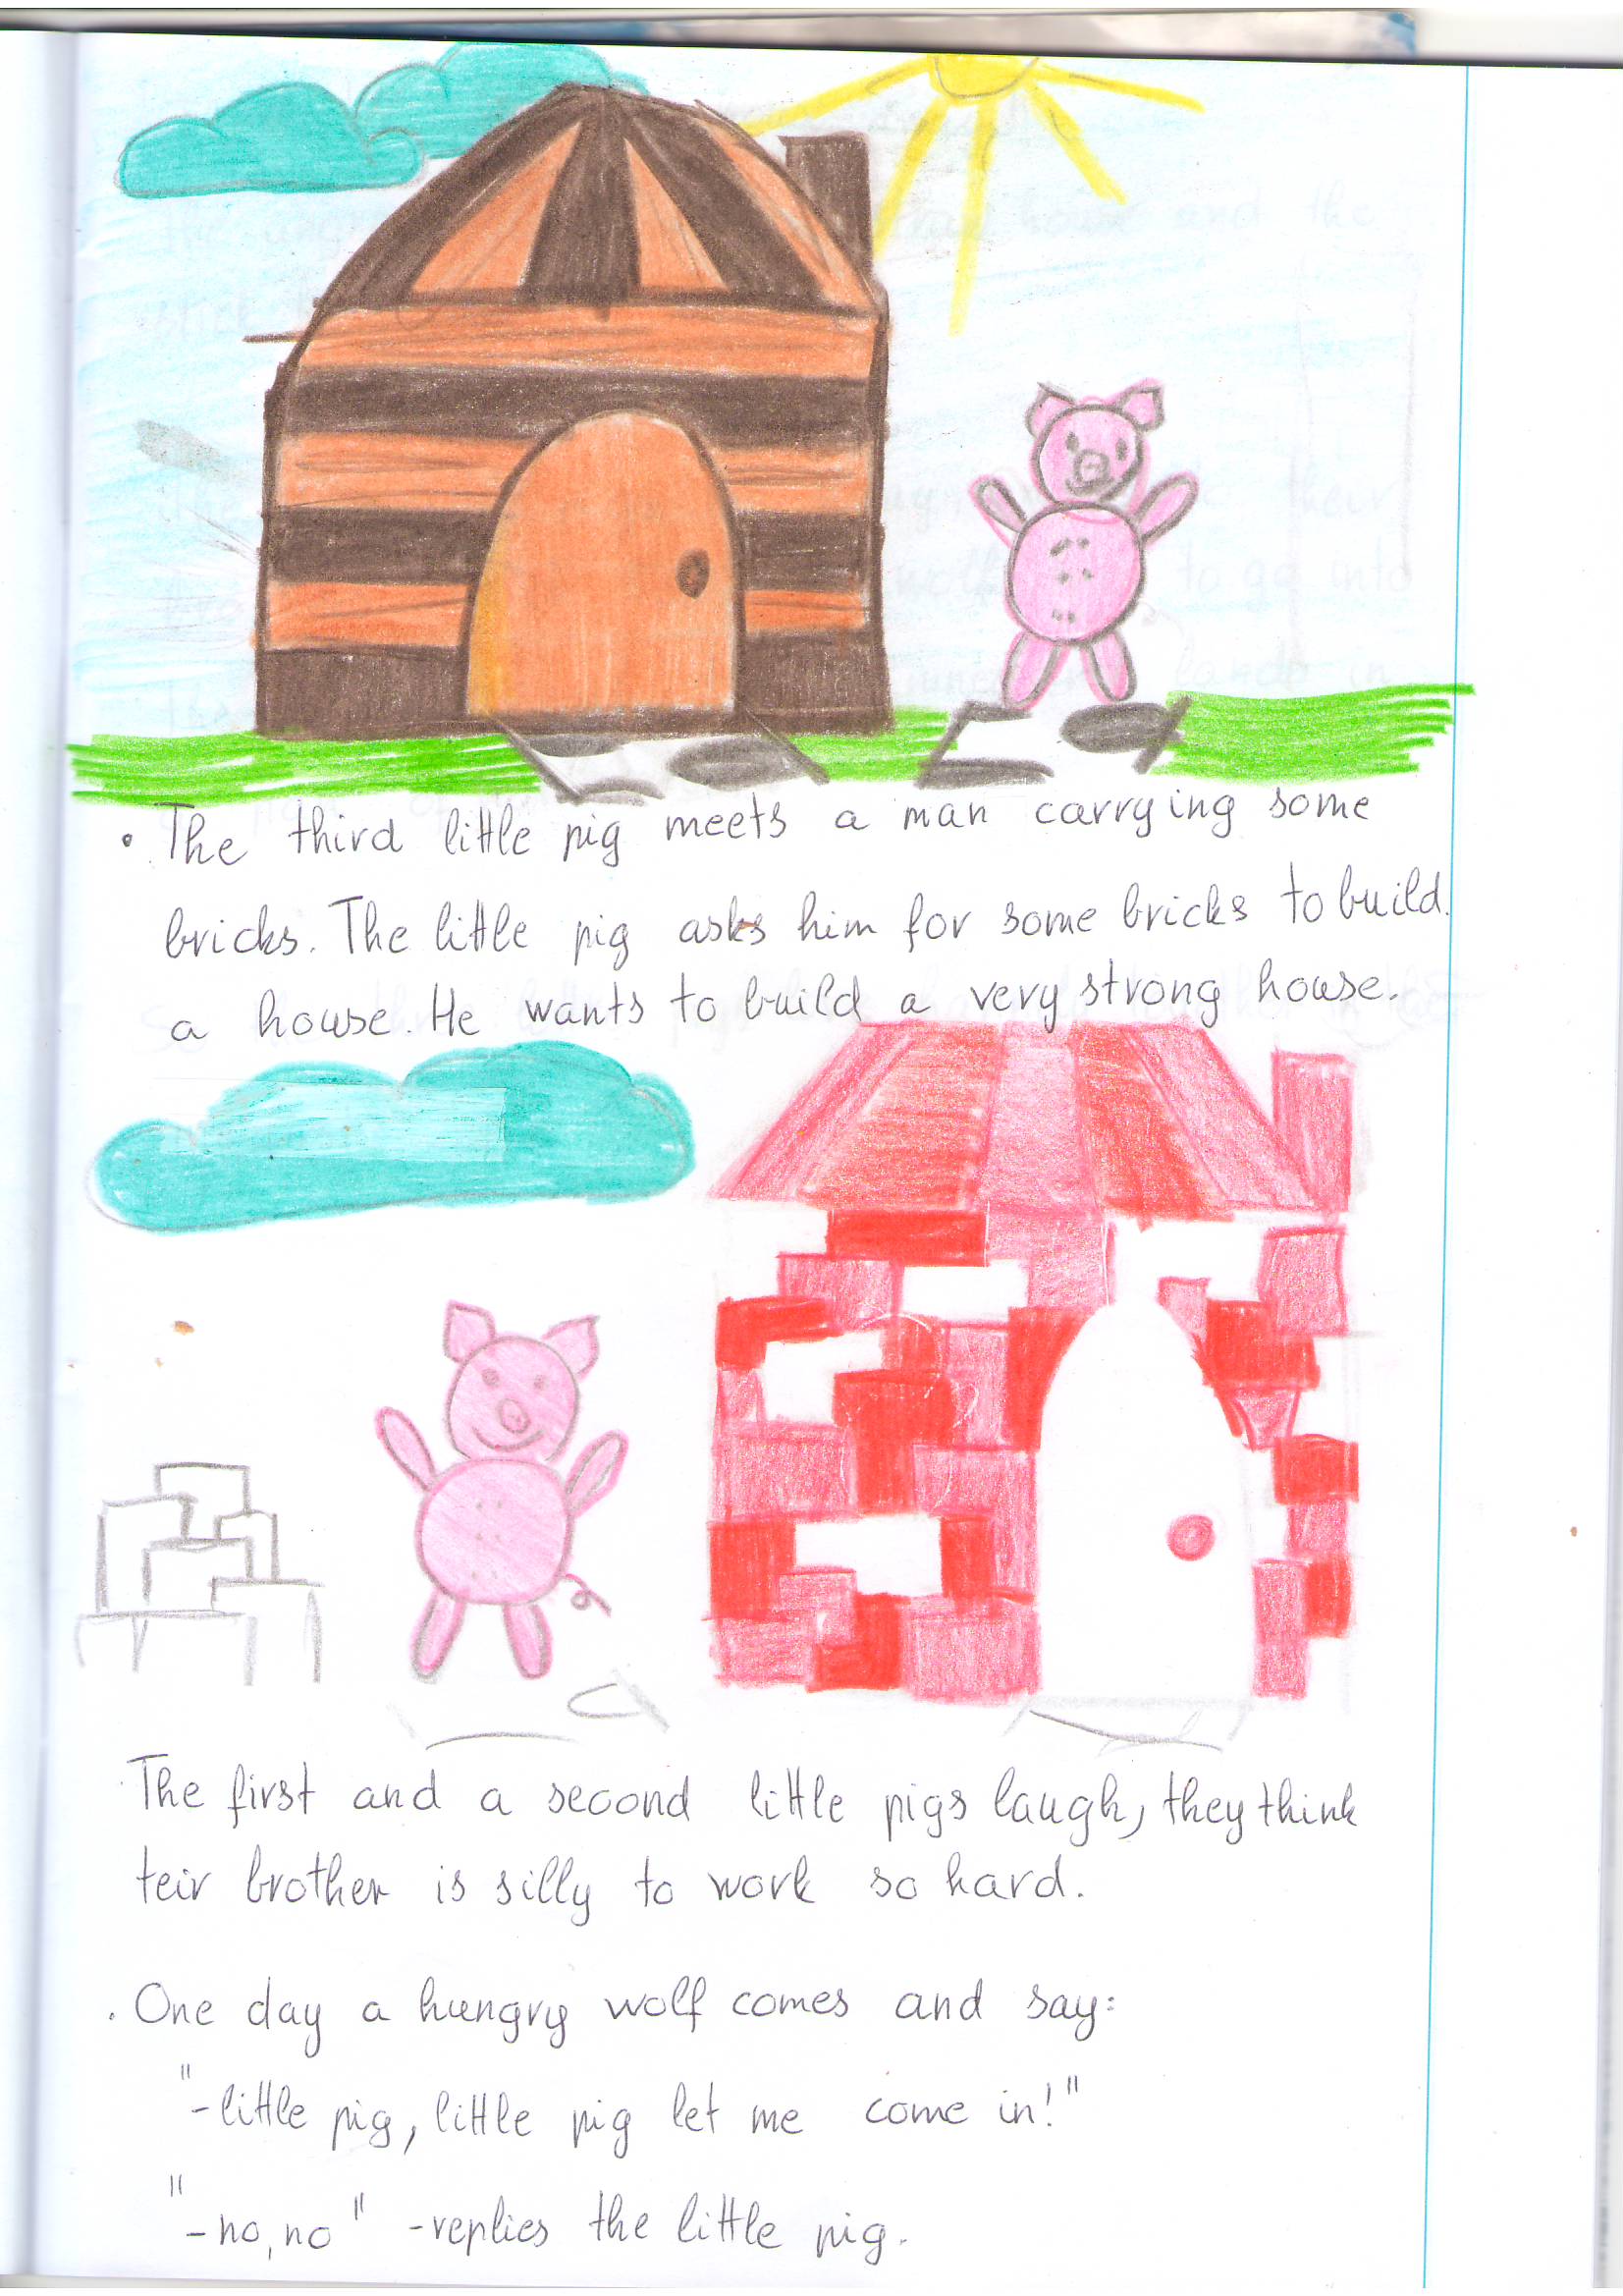 • The third little pig meets a man carrying some
bricks. The little pig asks him for some bricks to build
a house. He wants to build a very strong house.
The first and a second little pigs laugh, they think
teir brother is silly to work so hard.
. One day a hungry wolf comes and say:
"-little pig, little pig let me come in!"
"-no, no" -replies the little pig.